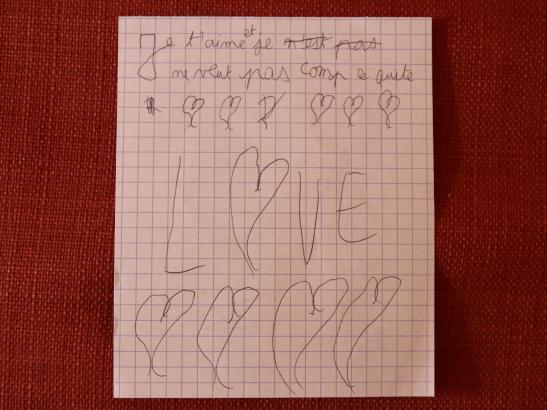 Je t'aime et je n'est pas
ne veut pas Comp te quite
LOVE